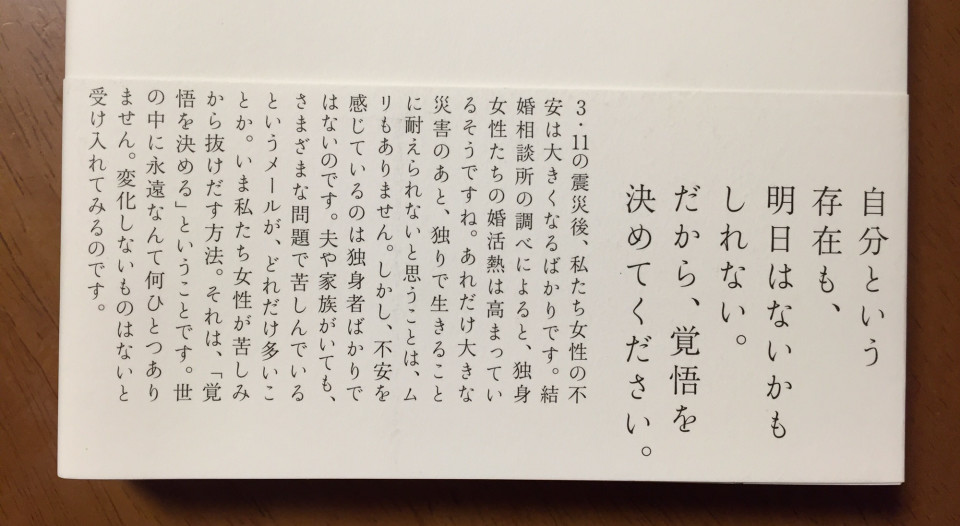 自分という
存在も、
明日はないかも
しれない。
だから、覚悟を
決めてください。
3・11の震災後、私たち女性の不
安は大きくなるばかりです。結
婚相談所の調べによると、独身
女性たちの婚活熱は高まってい
るそうですね。あれだけ大きな
災害のあと、独りで生きること
に耐えられないと思うことは、ム
リもありません。しかし、不安を
感じているのは独身者ばかりで
はないのです。夫や家族がいても、
さまざまな問題で苦しんでいる
というメールが、どれだけ多いこ
とか。いま私たち女性が苦しみ
から抜けだす方法。それは、「覚
悟を決める」ということです。世
の中に永遠なんて何ひとつあり
ません。変化しないものはないと
受け入れてみるのです。